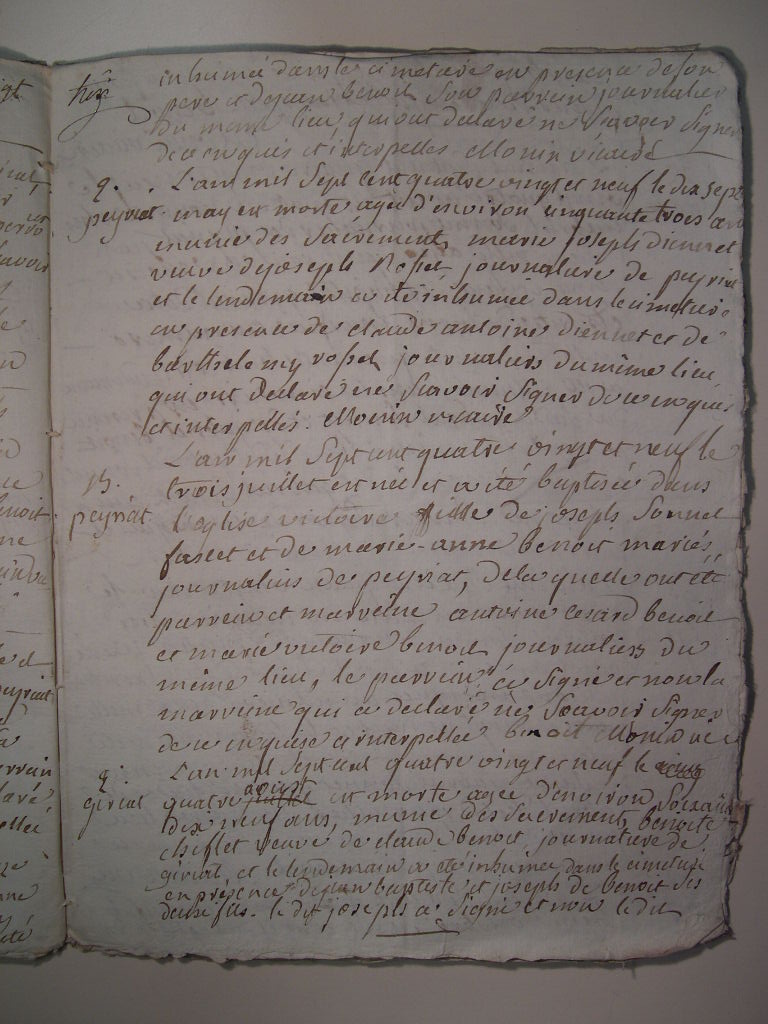 inhumée dans le cimetiere en presence de son
pere et de jean benoit son parrein journalier
du meme lieu, qui ont declaré ne scavoir signer
de ce enquis et interpellés Monin vicaire
L'an mil sept cent quatre vingt et neuf le dix sept
peyriat may est morte agee d'environ cinquante trois an
munie des sacrement, marie josephe diennet
veuve de joseph Rosset journaliere de peyriat
et le lendemain a été inhumée dans le cimetiere
en presence de claude antoine diennet et de
barthelemy rosset journaliers du même lieu
qui ont declaré ne scavoir signer de ce enquis
et interpellés. Monin vicaire
L'an mil sept cent quatre vingt et neuf le
trois juillet est née et a été baptisée dans
peyriat l'eglise victoire fille de joseph
et de marie-anne benoit mariés,
journaliers de peyriat, de laquelle ont été
parrein et marreine antoine cesard benoit
et marie victoire benoit journaliers du
même lieu, le parrein a signé et non la
marreine qui a declaré ne scavoir signer
de ce enquise et interpellée benoit Monin vic
L'an mil sept cent quatre vingt et neuf le
giriat quatre aoust est morte agee d'environ soixante
dix neuf ans, munie des sacrements, benoite
chiflet veuve de claude benoit, journaliere de
giriat, et le lendemain a été inhumée dans le cimetiere
en présence de jean baptiste et joseph de benoit ses
deux fils. le dit joseph a signé et non le dit